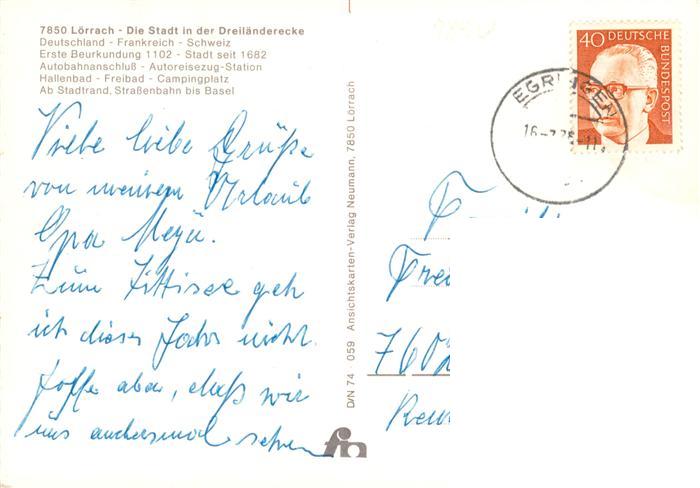 7850 Lörrach - Die Stadt in der Dreiländerecke
Deutschland - Frankreich - Schweiz
Erste Beurkundung 1102 - Stadt seit 1682
Autobahnanschluß - Autoreisezug-Station
Hallenbad - Freibad - Campingplatz
Ab Stadtrand, Straßenbahn bis Basel
Viele liebe Grüße
von meinem Urlaub
Opa
Zum geh
ich dieses Jahr nicht.
Hoffe aber, daß wir
uns andersmal sehen
D/N 74 059 Ansichtskarten-Verlag Neumann, 7850 Lörrach
40 DEUTSCHE
BUNDESPOST
EGRINGEN